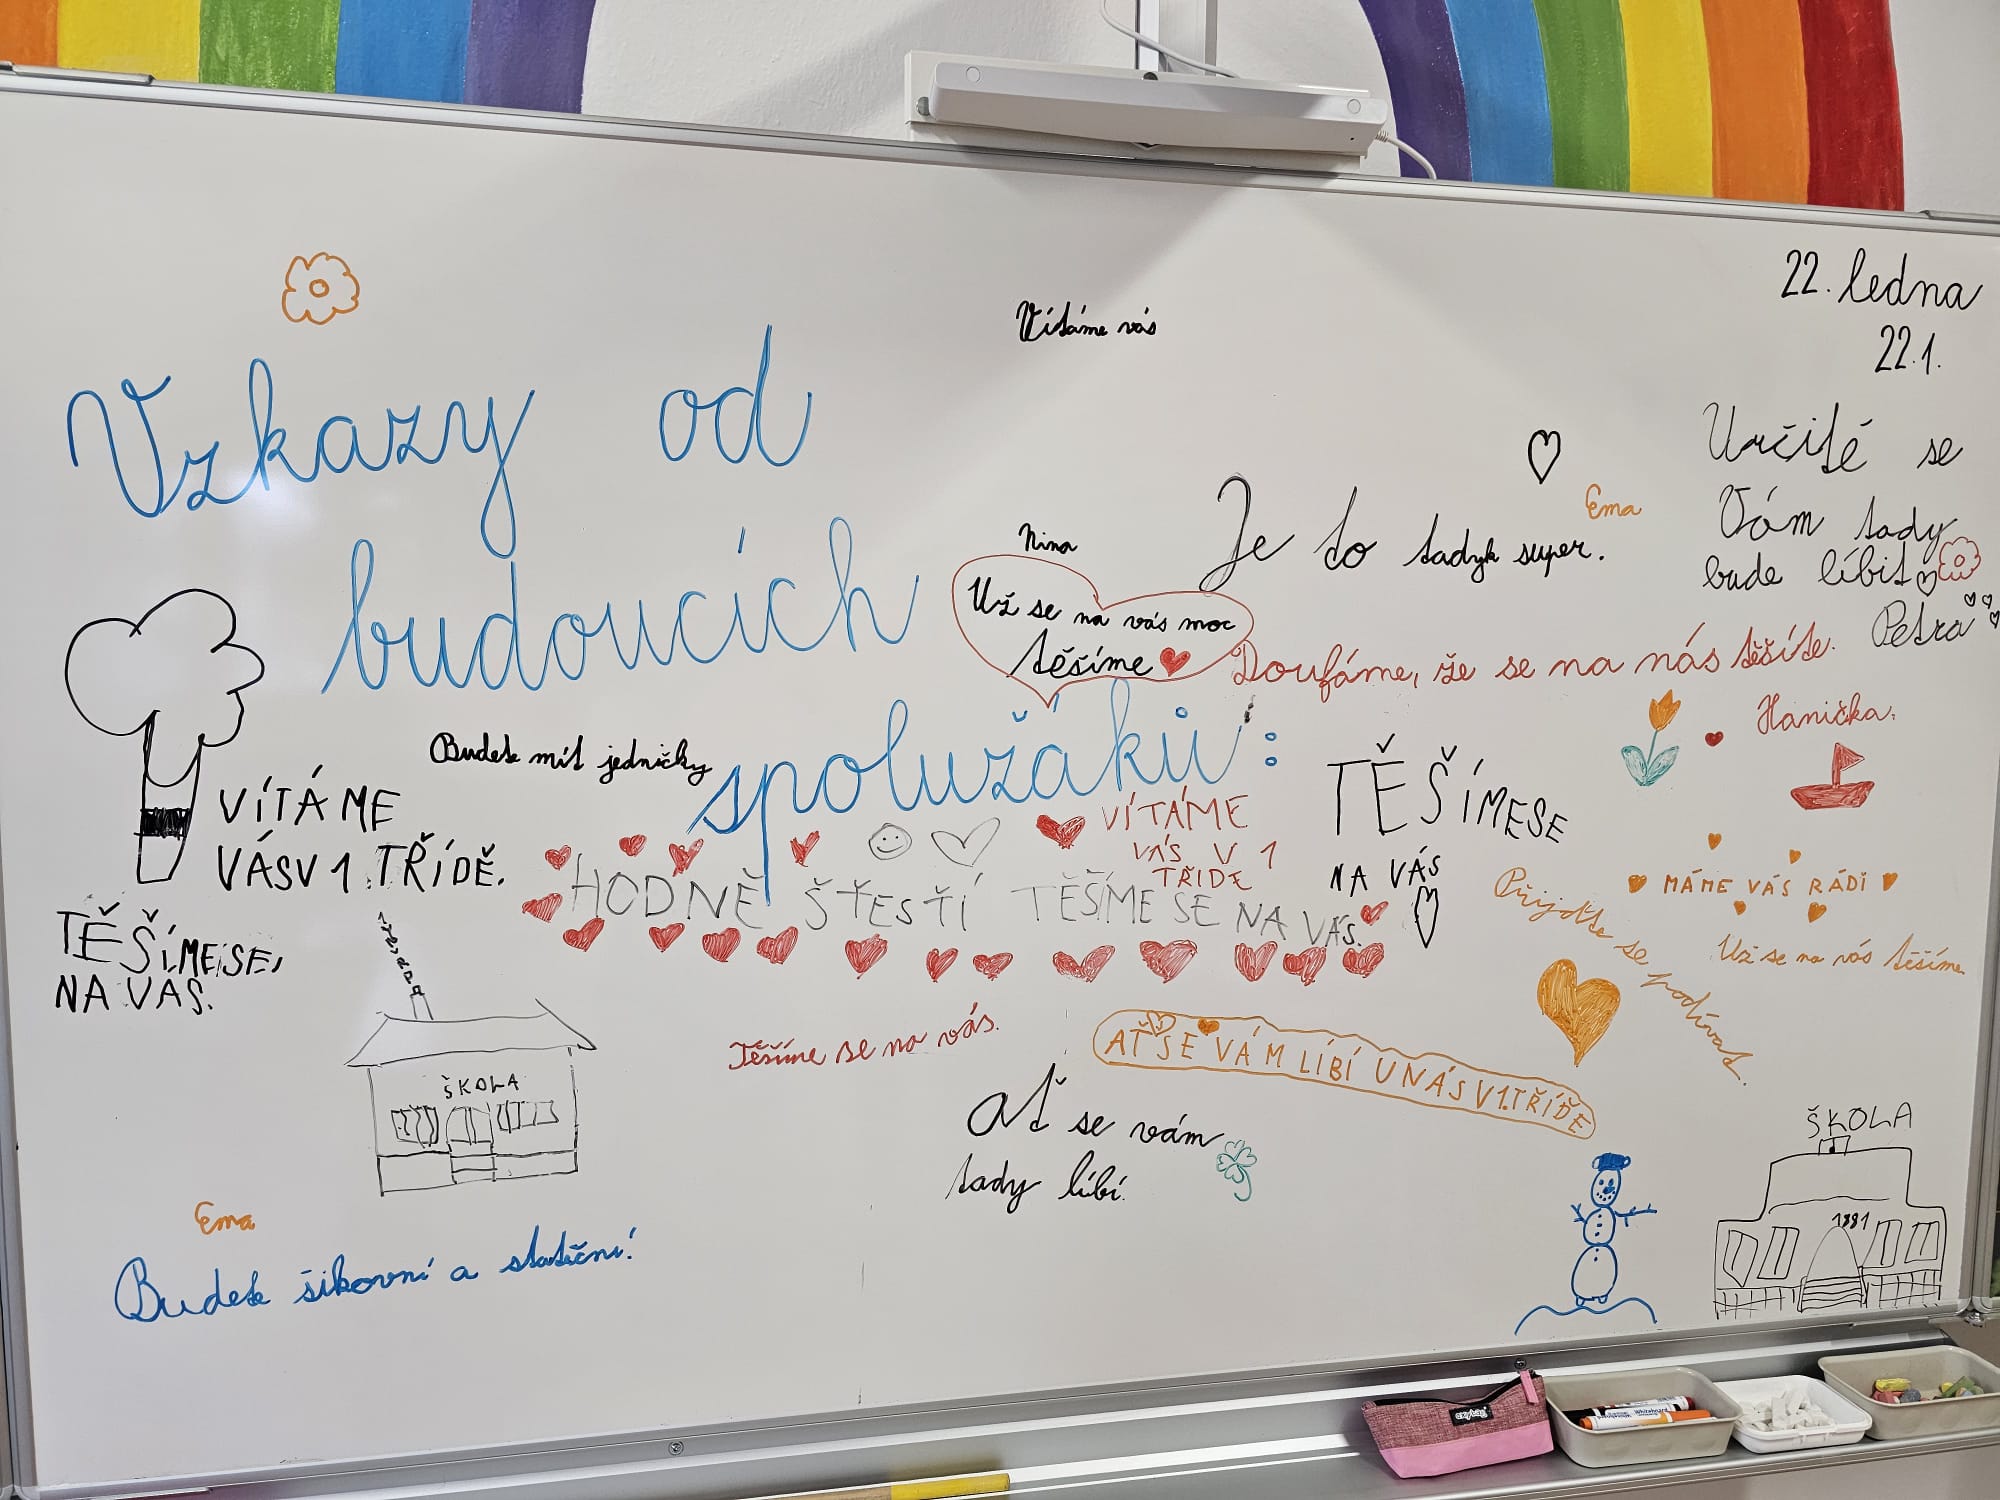 22. ledna
22.1.
Vítáme vás
Vzkazy od
budoucích
spolužáků:
Určitě se
Vám tady
bude líbit
Petra
Ema
Je to tadyk super.
Nina
Už se na vás moc
těšíme
Doufáme, že se na nás těšíte.
Hanička.
Budete mít jedničky
VÍTÁME
VÁSV 1 TŘÍDĚ.
TĚŠÍMESE,
NA VÁS.
VÍTÁME
VÁS V 1
TŘIDE
TĚŠÍMESE
NA VÁS
HODNĚ ŠŤESTÍ TĚŠÍME SE NA VÁS.
MÁME VÁS RÁDI
Přijďte se podívat.
Už se na vás těšíme
Těšíme se na vás.
AŤ SE VÁM LÍBÍ U NÁS V 1.TŘÍDE
Ať se vám
tady líbí.
ŠKOLA
ŠKOLA
1881
Ema
Budete šikovní a stateční!